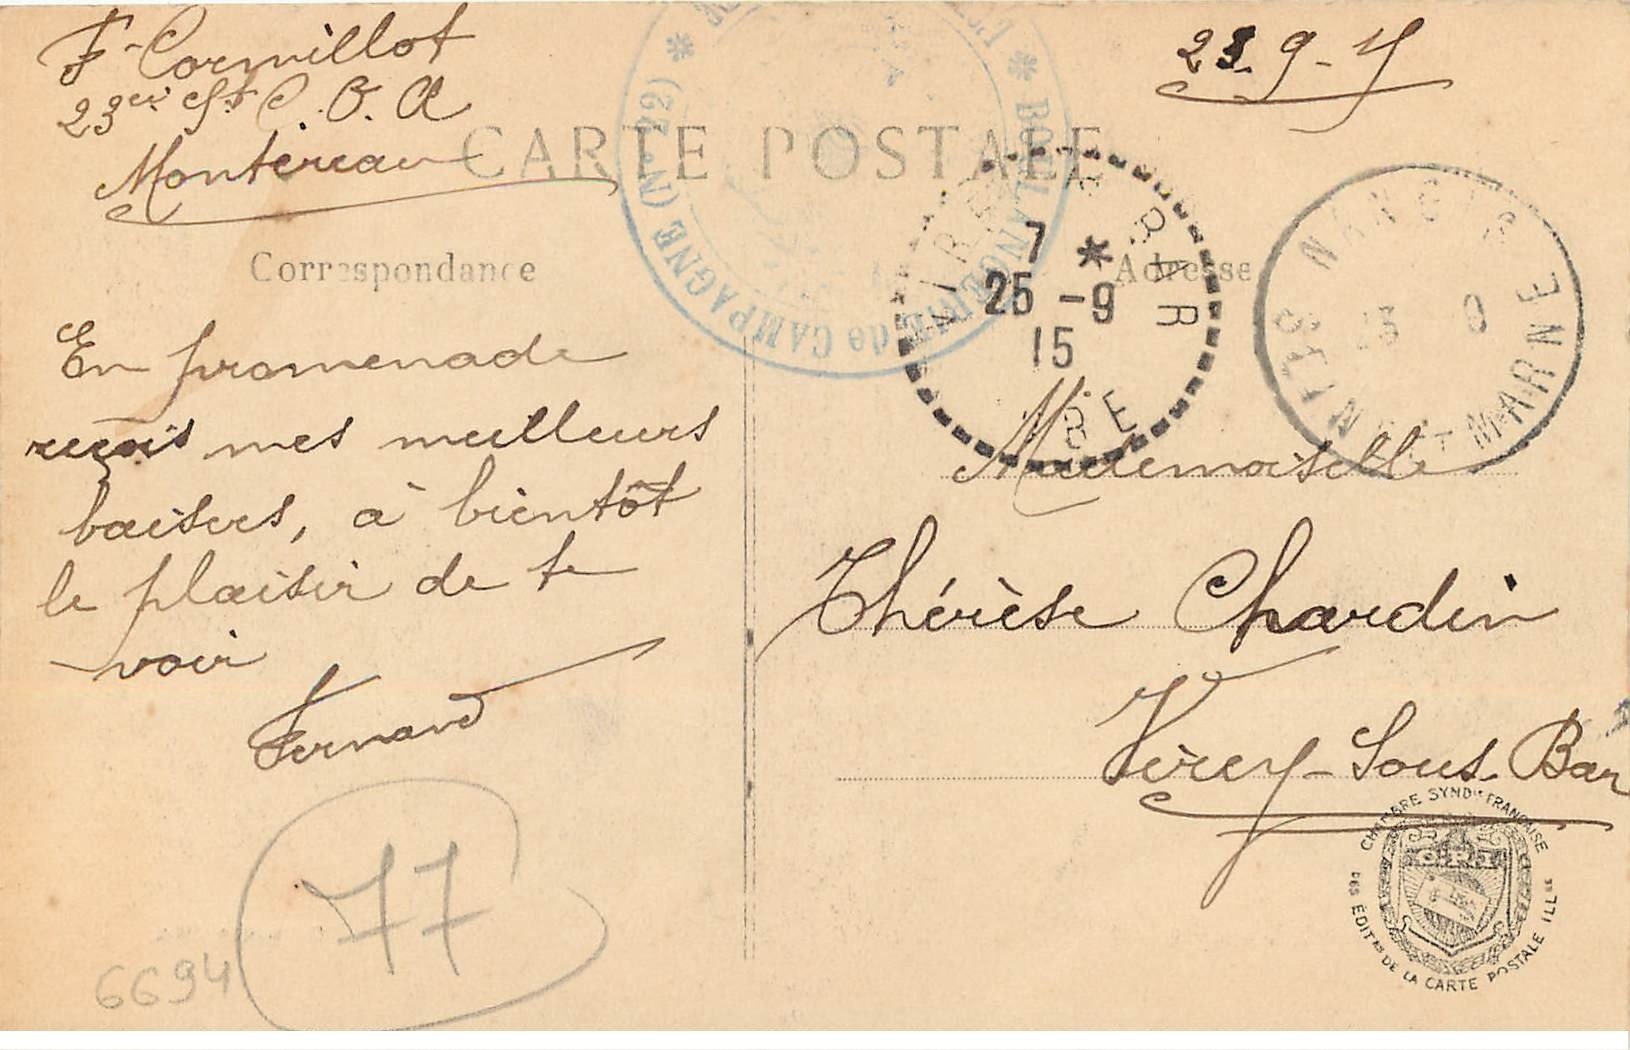 F. Cormillot
23em St C. O. A
Montereau
23.9-15
CARTE POSTALE
Correspondance
Adresse
BOULANGERIE de CAMPAGNE (N° 22)
VIREY S BAR
7 *
25 -9
15
AUBE
NANGIS
SEINE ET MARNE
En promenade
reçois mes meilleurs
baisers, à bientôt
le plaisir de te
voir
Fernand
Mademoiselle
Thérèse Chardin
Virey-Sous-Bar
77
6694
CHAMBRE SYNDle FRANÇAISE
DES EDITRS DE LA CARTE POSTALE ILLée